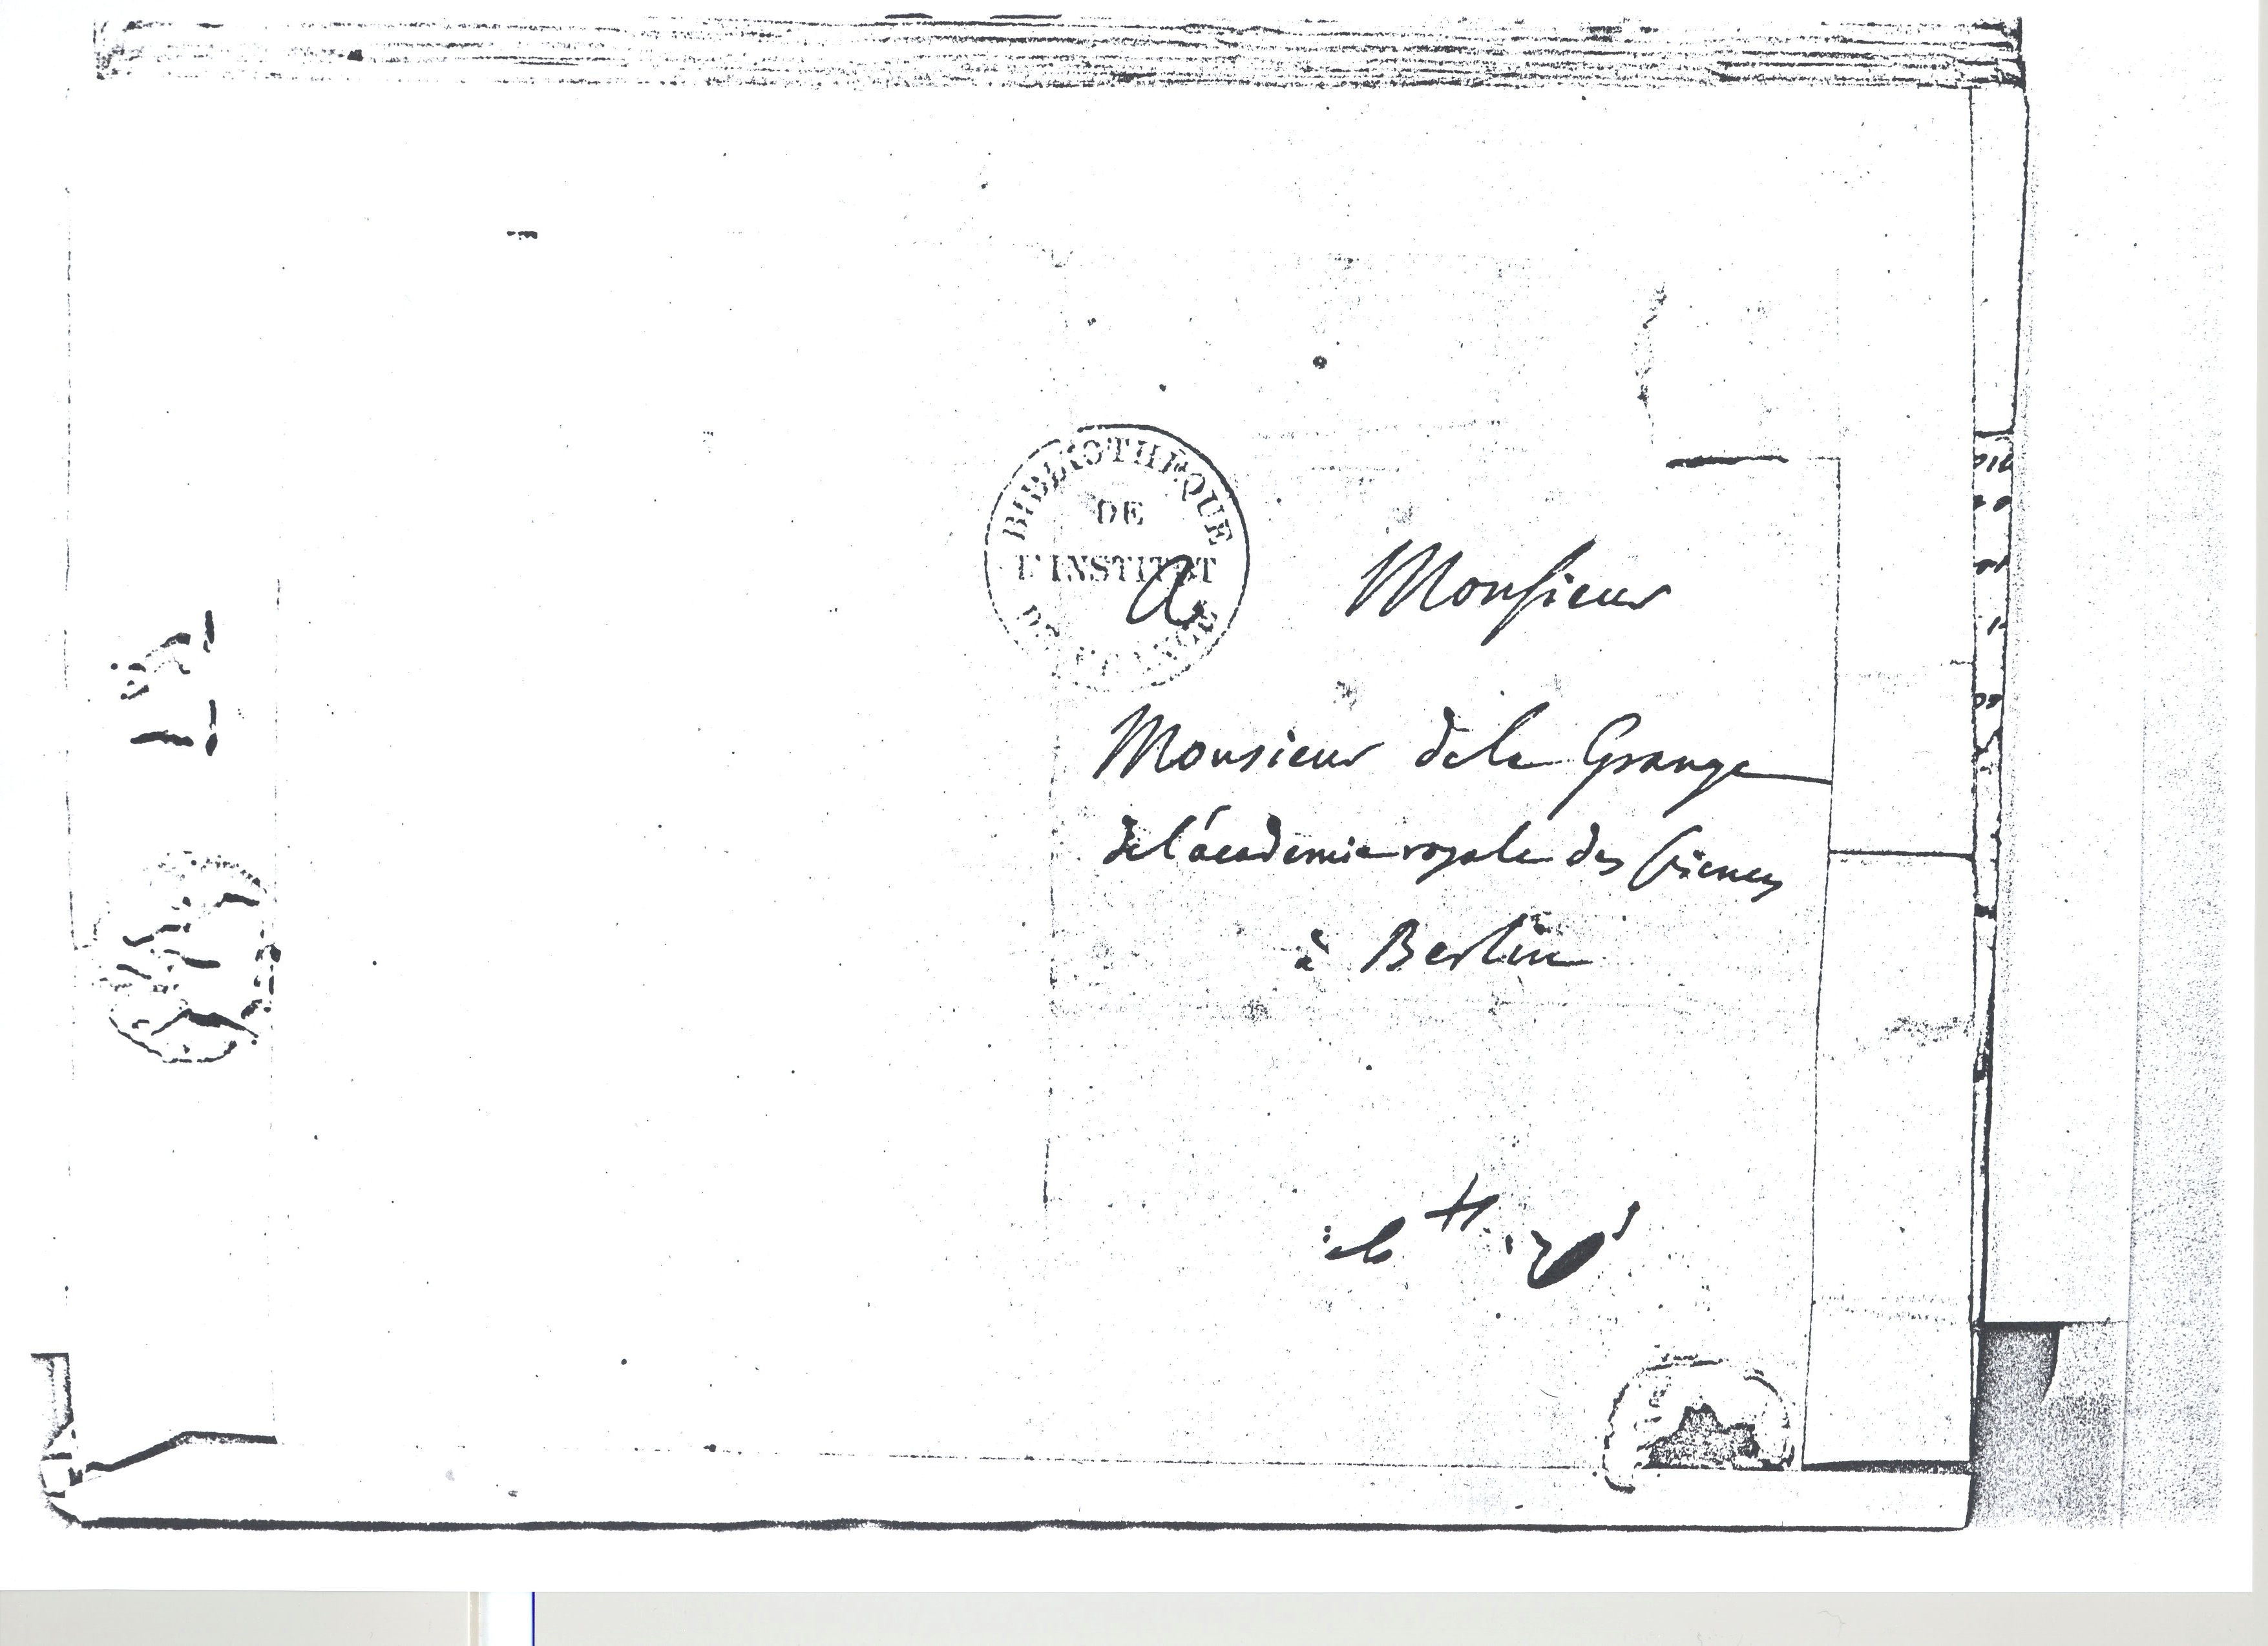 BIBLIOTHÈQUE
DE
L'INSTITUT
DE FRANCE
A Monsieur
Monsieur dela Grange
del'académie royale des Sciences
à Berlin